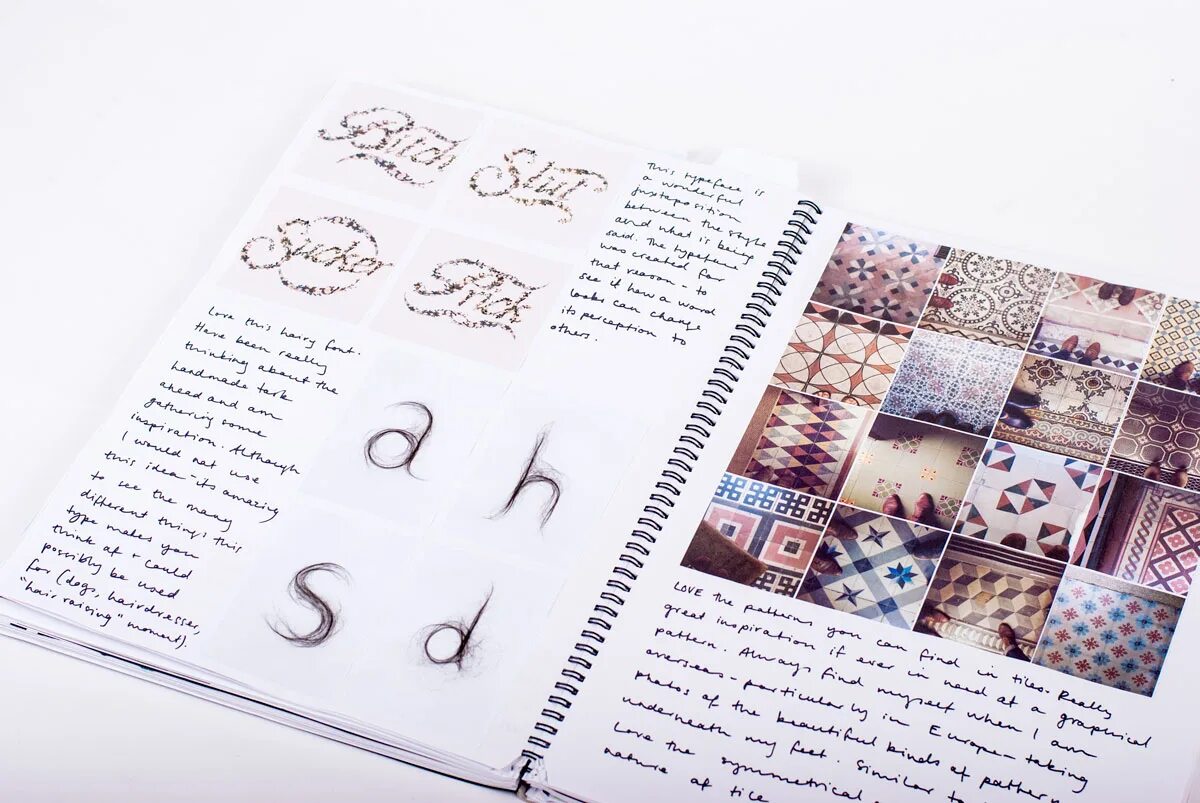 Bitch
Slut
Sucker
Prick
This typeface is
a wonderful
juxtaposition
between the style
and what is being
said. The typeface
was created for
that reason - to
see if how a word
looks can change
its perception to
others.
Love this hairy font.
Have been really
thinking about the
handmade task
ahead and am
gathering some
inspiration. Although
I would not use
this idea - its amazing
to see the many
different things this
type makes you
think of + could
possibly be used
for (dogs, hairdresser,
"hair raising" moment).
a h
s d
LOVE the patterns you can find in tiles. Really
great inspiration if ever in need of a graphical
pattern. Always find myself when I am
overseas - particularly in Europe - taking
photos of the beautiful kinds of pattern
underneath my feet. Similar to
Love the symmetrical
nature of tile